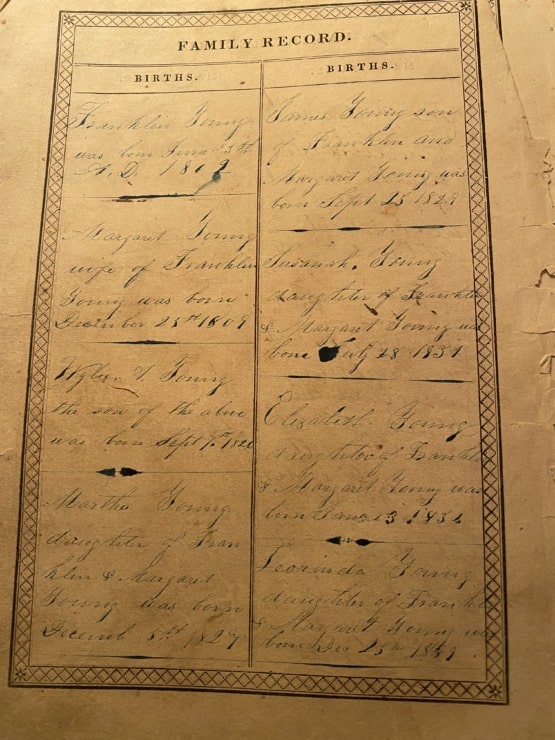 FAMILY RECORD.
BIRTHS.
Franklin Young
was born June 5th
A.D. 180
Margaret Young
wife of Franklin
Young was born
December 25th 1809
Young
the son of the above
was born Sept
Martha Young
daughter of Fran
klin & Margaret
Young was born
Decemb 1827
BIRTHS.
James Young son
of Franklin and
Margaret Young was
born Sept 15 1829
Susanah. Young
daughter of Franklin
& Margaret Young was
born July 28 1831
Elizabeth Young
daughter of Franklin
& Margaret Young was
born
Young
daughter of Franklin
& Margaret Young was
born Dec 25th